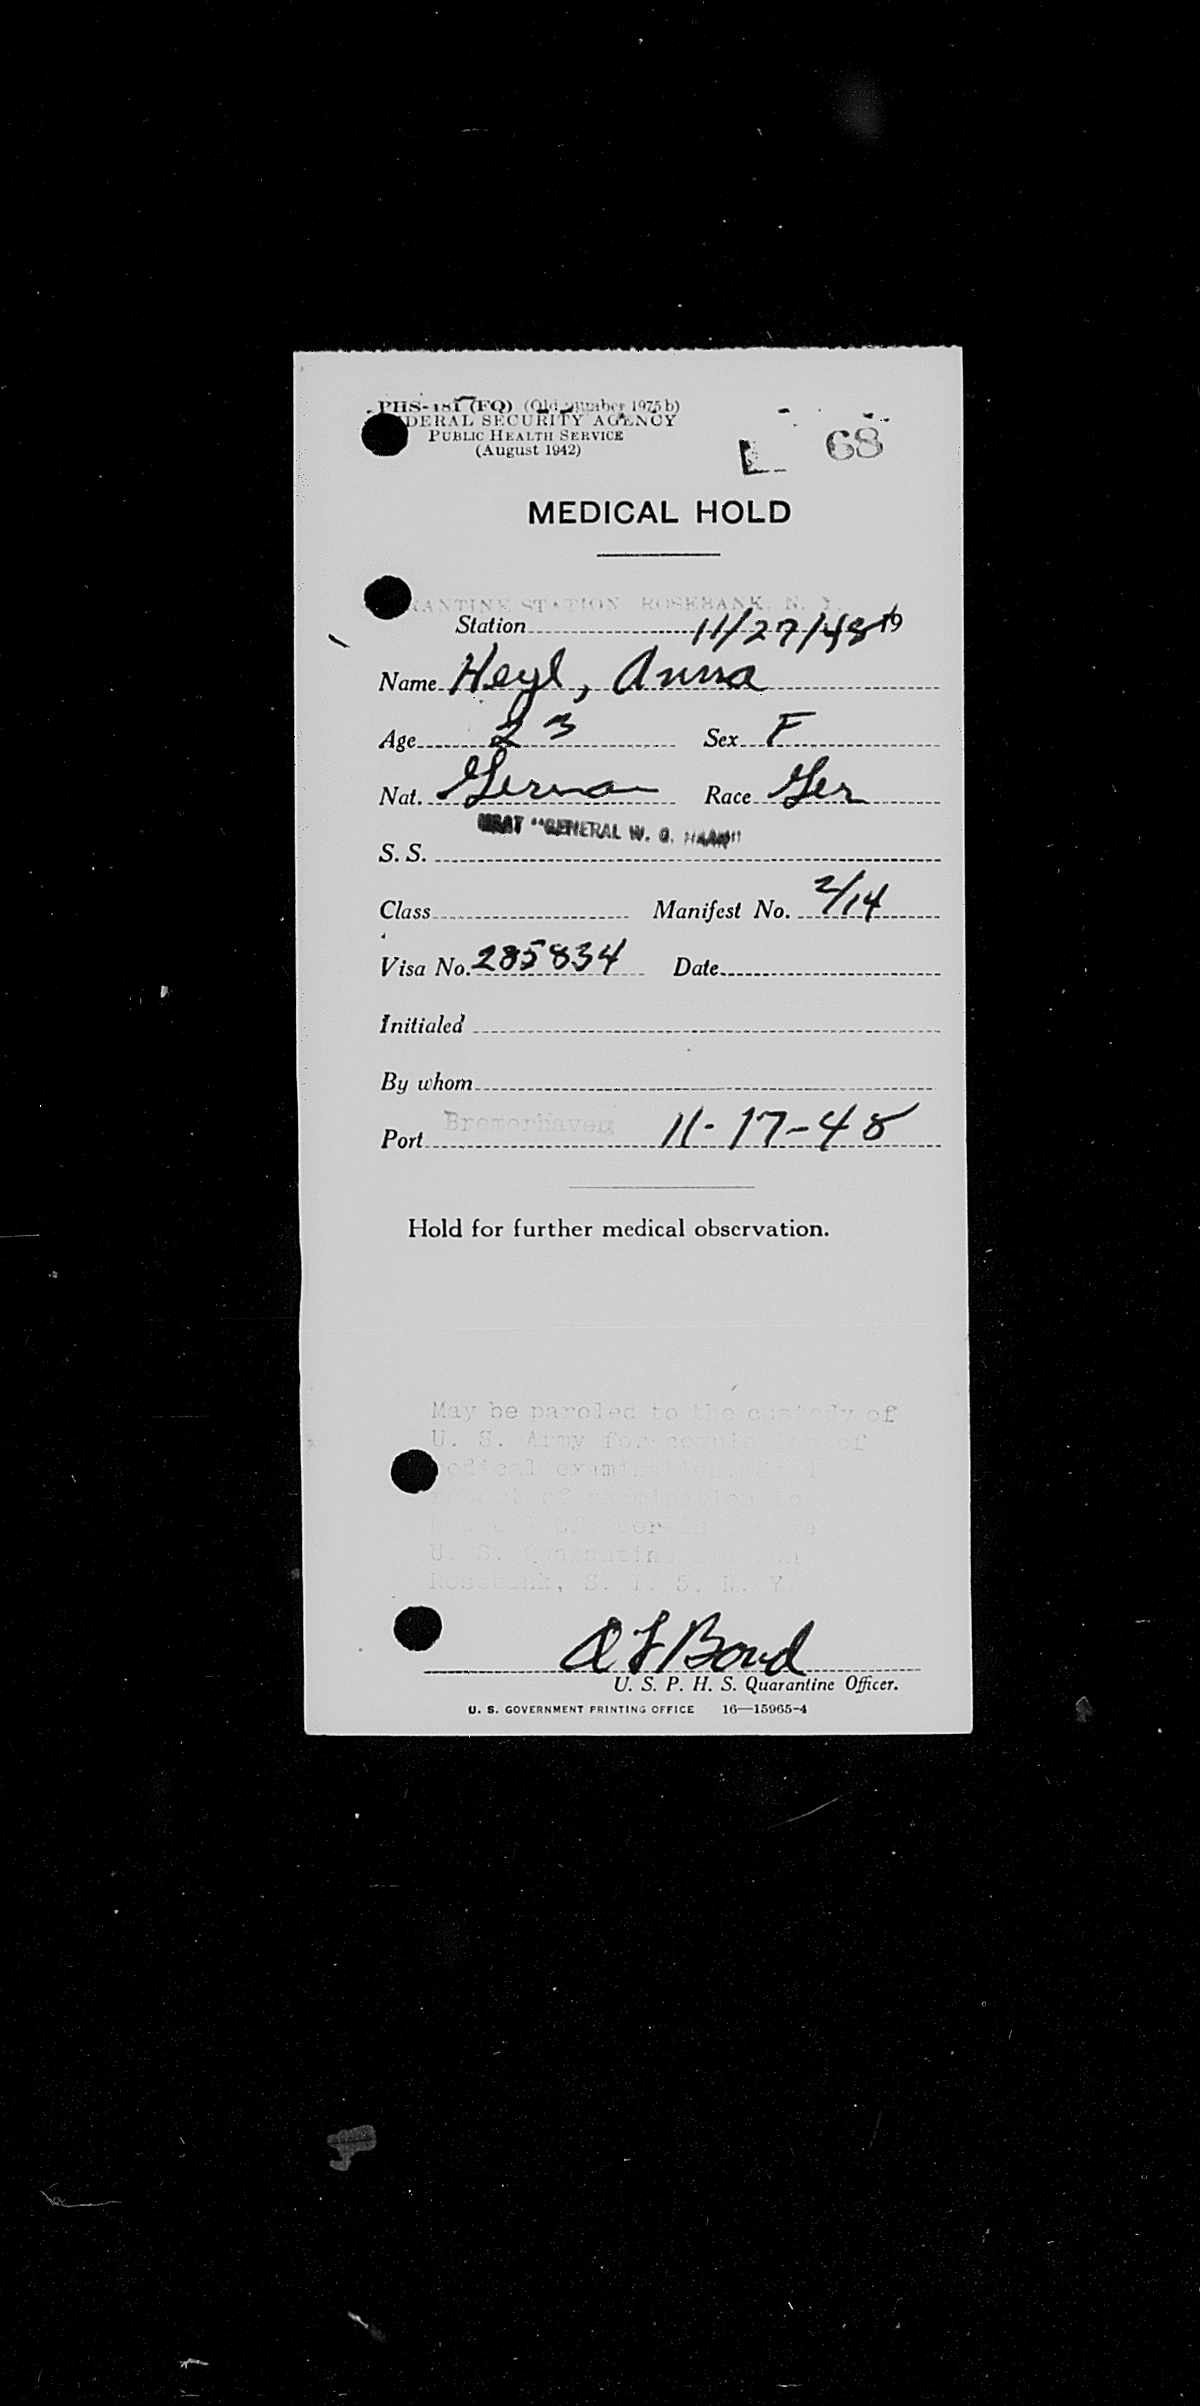 PHS-181 (FQ) (Old number 1975b)
DERAL SECURITY AGENCY
PUBLIC HEALTH SERVICE
(August 1942)
68
MEDICAL HOLD
RANTINE STATION ROSEBANK, N. Y.
Station 11/27/48 19
Name Heyl, Anna
Age 23 Sex F
Nat. German Race Ger
USAT "GENERAL W. G. HAAN"
S. S.
Class Manifest No. 2/14
Visa No. 285834 Date
Initialed
By whom
Port Bremerhaven 11-17-48
Hold for further medical observation.
May be paroled to the custody of
U. S. Army for completion of
medical examination
of examination to
U. S. Quarantine
Rosebank, S. I. 5, N. Y.
A F Bond
U. S. P. H. S. Quarantine Officer.
U. S. GOVERNMENT PRINTING OFFICE 16—15965-4